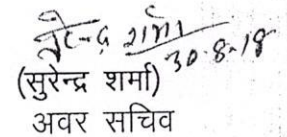 सुरेन्द्र शर्मा
30.8.18
(सुरेन्द्र शर्मा)
अवर सचिव